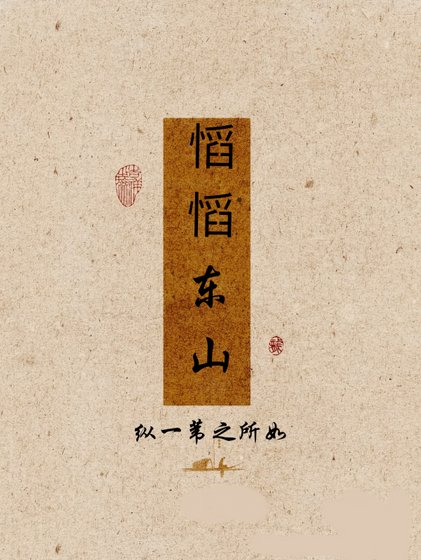 慆慆东山
纵一苇之所如